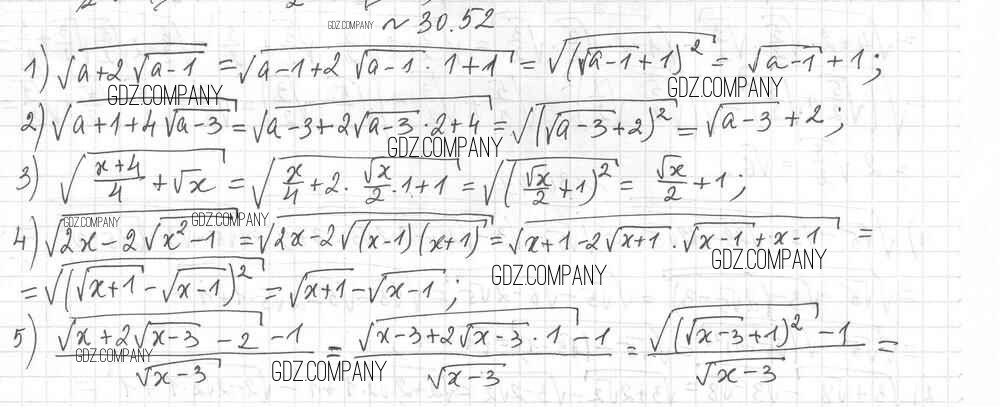 GDZ.COMPANY ~ 30.52
1) √(a+2√(a-1)) = √(a-1+2√(a-1)·1+1) = √((√(a-1)+1)²) = √(a-1)+1;
GDZ.COMPANY GDZ.COMPANY
2) √(a+1+4√(a-3)) = √(a-3+2√(a-3)·2+4) = √((√(a-3)+2)²) = √(a-3)+2;
GDZ.COMPANY
3) √((x+4)/4+√x) = √(x/4+2·√x/2·1+1) = √((√x/2+1)²) = √x/2+1;
GDZ.COMPANY GDZ.COMPANY
4) √(2x-2√(x²-1)) = √(2x-2√((x-1)(x+1))) = √(x+1-2√(x+1)·√(x-1)+x-1) =
GDZ.COMPANY GDZ.COMPANY
= √((√(x+1)-√(x-1))²) = √(x+1)-√(x-1);
5) (√(x+2√(x-3)-2)-1)/√(x-3) = (√(x-3+2√(x-3)·1)-1)/√(x-3) = (√((√(x-3)+1)²)-1)/√(x-3) =
GDZ.COMPANY GDZ.COMPANY